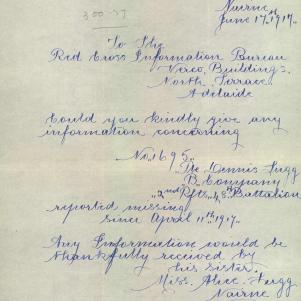 Nairne
June 17th 1917.
To The
Red Cross Information Bureau
Verco Buildings
North Terrace
Adelaide
Could you kindly give any
information concerning
No. 1695.
Pte Dennis Fugg
B. Company
2nd Rfts. 48th Battalion
reported missing
since April 11th, 1917.
Any Information would be
thankfully received by
his sister.
Miss. Alice. Fugg
Nairne